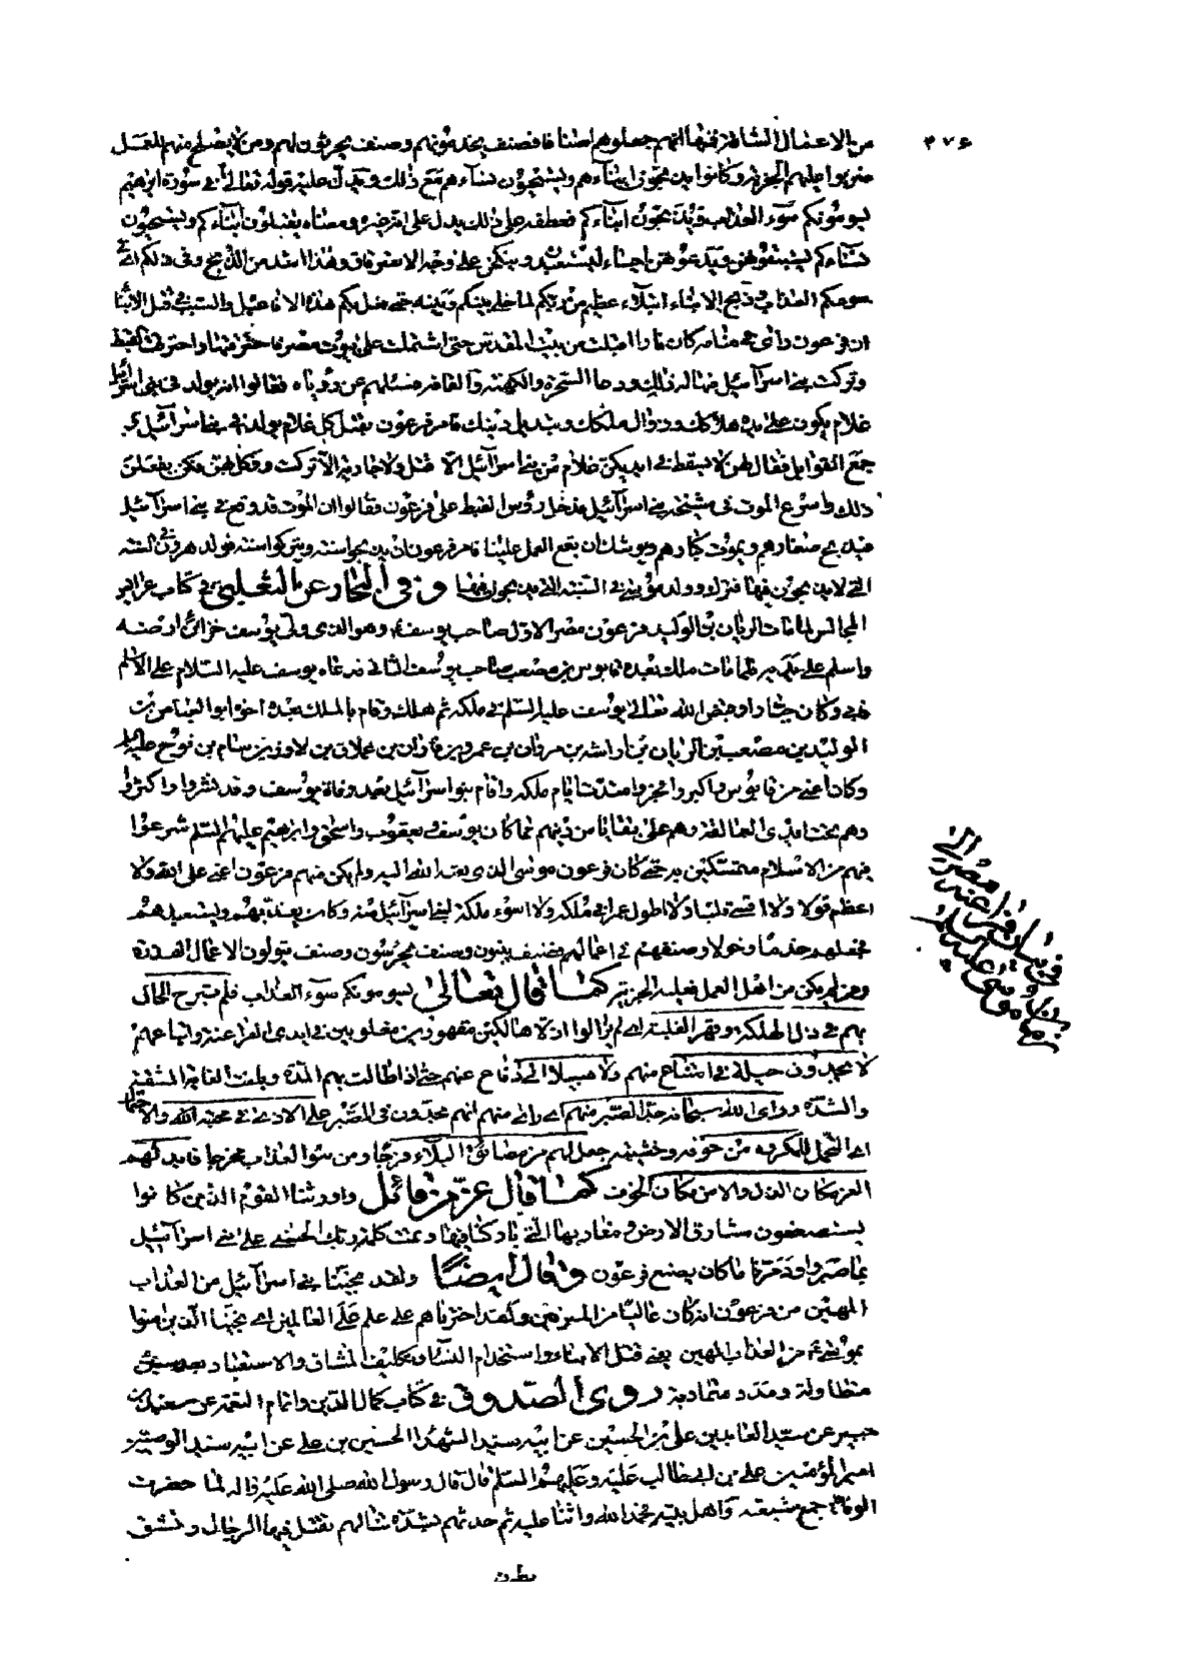 ٣٧٤
من الاعمال الشاقة فمنها انهم جعلوهم اصنافا فصنف يخدمونهم وصنف يحرثون لهم ومن لا يصلح منهم للعمل
ضربوا عليهم الجزية وكانوا يذبحون ابناءهم ويستحيون نساءهم مع ذلك ويدل عليه قوله تعالى في سورة ابراهيم
يسومونكم سوء العذاب ويذبحون ابناءكم فعطفه على ذلك يدل على انه غيره ومعناه يقتلون ابناءكم ويستحيون
نساءكم يستبقونهن ويدعونهن احياء ليستعبدن وينكحن على وجه الاسترقاق وهذا اشد من الذبح وفي ذلكم اي في
سومكم العذاب وذبح الابناء ابتلاء عظيم من ربكم لما خلى بينكم وبينه حتى فعل بكم هذه الافاعيل والسبب في قتل الابناء
ان فرعون راى في منامه كان نارا اقبلت من بيت المقدس حتى اشتملت على بيوت مصر فاحرقتها واحرقت القبط
وتركت بني اسرآئيل فهاله ذلك ودعا السحرة والكهنة والقافة فسئلهم عن رؤياه فقالوا انه يولد في بني اسرائيل
غلام يكون على يده هلاكك وزوال ملكك وتبديل دينك فامر فرعون بقتل كل غلام يولد في بني اسرآئيل و
جمع القوابل فقال لهن لا يسقط في ايديكن غلام من بني اسرآئيل الا قتل ولا جارية الا تركت ووكل بهن فكن يفعلن
ذلك واسرع الموت في مشيخة بني اسرآئيل فدخل رؤس القبط على فرعون فقالوا ان الموت قد وقع في بني اسرآئيل
فيذبح صغارهم ويموت كبارهم ويوشك ان يقع العمل علينا فامر فرعون ان يذبحوا سنة ويتركوا سنة فولد هرون في السنة
التي لا يذبحون فيها فترك وولد موسى في السنة التي يذبحون فيها وفي البحار عن الثعلبي في كتاب عرايس
المجالس لما مات الريان بن الوليد فرعون مصر الاول صاحب يوسف وهو الذي ولى يوسف خزائن ارضه
واسلم على يديه فلما مات ملك بعده قابوس بن مصعب صاحب يوسف الثاني فدعاه يوسف عليه السلام على الاسلام
فابى وكان جبارا وقبض الله تعالى يوسف عليه السلم في ملكه ثم هلك وقام بالملك بعده اخوه ابو العباس بن
الوليد بن مصعب بن الريان بن اراشه بن مروان بن عمرو بن فاران بن عملاق بن لاوذ بن سام بن نوح عليه السلم
وكان اعتى من قابوس واكبر وافجر وامتدت ايام ملكه واقام بنو اسرآئيل بعد وفاة يوسف وقد نشروا واكثروا
وهم تحت ايدي العمالقة وهم على بقايا من دينهم مما كان يوسف ويعقوب واسحق وابرهيم عليهم السلم شرعوا
فيهم من الاسلام متمسكين به حتى كان فرعون موسى الذي بعثه الله اليه ولم يكن منهم فرعون اعتى على الله ولا
اعظم قولا ولا اقسى قلبا ولا اطول عمرا في ملكه ولا اسوء ملكة لبني اسرآئيل منه وكان يعذبهم ويستعبدهم
فجعلهم خدما وخولا وصنفهم في اعماله فصنف يبنون وصنف يحرثون وصنف يتولون الاعمال القذرة
ومن لم يكن من اهل العمل فعليه الجزية كما قال تعالى يسومونكم سوء العذاب فلم تبرح الحال
بهم في ذل الهلكة وقهر الغلبة اي لم يزالوا اذلاء هالكين مقهورين مغلوبين في ايدي الفراعنة واتباعهم
لا يجدون حيلة في امتناع منهم ولا سبيلا الى دفاع عنهم حتى اذا طالت بهم المدة وبلغت الغاية المشقة
والشدة وراى الله سبحانه جد الصبر منهم اي راى منهم انهم مجدون في الصبر على الاذى في محبة الله والاحتمال
اي التحمل للمكروه من خوفه وخشيته جعل لهم من مضائق البلاء فرجا ومن سوء العذاب مخرجا فابدلهم
العز مكان الذل والامن مكان الخوف كما قال عز من قائل واورثنا القوم الذين كانوا
يستضعفون مشارق الارض ومغاربها التي باركنا فيها وتمت كلمة ربك الحسنى على بني اسرآئيل
بما صبروا ودمرنا ما كان يصنع فرعون وقال ايضا ولقد نجينا بني اسرآئيل من العذاب
المهين من فرعون انه كان عاليا من المسرفين ولقد اخترناهم على علم على العالمين اي نجينا الذين امنوا
بموسى من العذاب المهين يعني قتل الابناء واستخدام النساء وتكليف المشاق والاستعباد بعد سنين
متطاولة ومدد متمادية روى الصدوق في كتاب كمال الدين واتمام النعمة عن سعيد بن
جبير عن سيد العابدين علي بن الحسين عن ابيه سيد الشهدا الحسين بن علي عن ابيه سيد الوصيين
امير المؤمنين علي بن ابي طالب عليه وعليهم السلم قال قال رسول الله صلى الله عليه واله لما حضرت
الوفاة جمع شيعته واهل بيته فحمد الله واثنا عليه ثم حدثهم بشدة تنالهم يقتل فيها الرجال وتشق
بطون
في بيان فراعنة مصر الى
زمان موسى عليه السلم